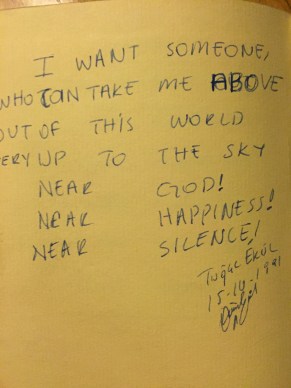 I WANT SOMEONE,
WHO CAN TAKE ME ABOVE
OUT OF THIS WORLD
UP TO THE SKY
NEAR GOD!
NEAR HAPPINESS!
NEAR SILENCE!